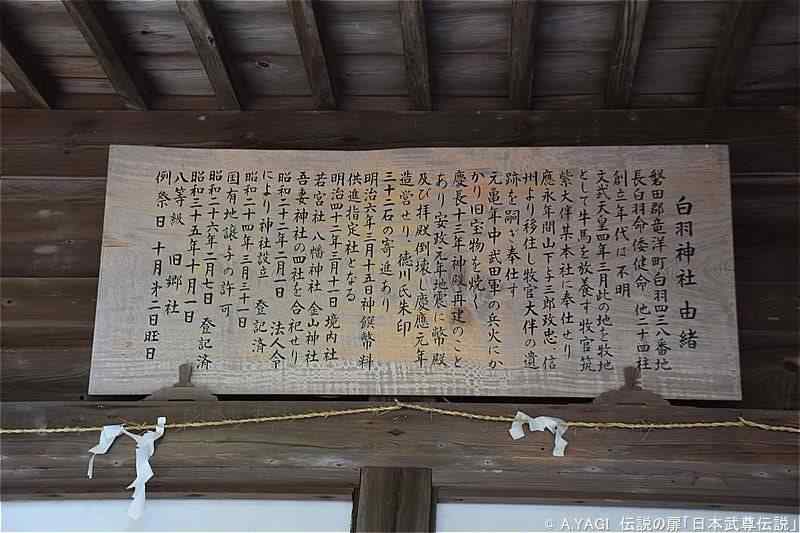 白羽神社 由緒
磐田郡竜洋町白羽四三八番地
長白羽命倭健命 他二十四柱
創立年代は不明
文武天皇四年三月此の地と牧地
として牛馬を放養す牧官筑
紫大伴某本社に奉仕せり
應永年間山下与三郎政忠 信
州より移住し牧官大伴の遺
跡を嗣ぎ奉仕す
元亀年中 武田軍の兵火にか
かり旧宝物を焼く
慶長十三年神殿再建のこと
あり安政元年地震に幣殿
及び拝殿倒壊し慶應元年
造営せり徳川氏朱印
三十二石の寄進あり
明治六年三月十五日神饌幣料
供進指定社となる
明治四十二年三月十一日境内社
若宮社 八幡神社 金山神社
吾妻神社の四社を合祀せり
昭和二十二年二月一日 法人令
により神社設立 登記済
昭和二十四年三月三十一日
国有地譲予の許可
昭和二十六年二月七日 登記済
昭和三十五年十月一日
八等級 旧郷社
例祭日 十月才二日旺日
© A.YAGI 伝説の扉「日本武尊伝説」